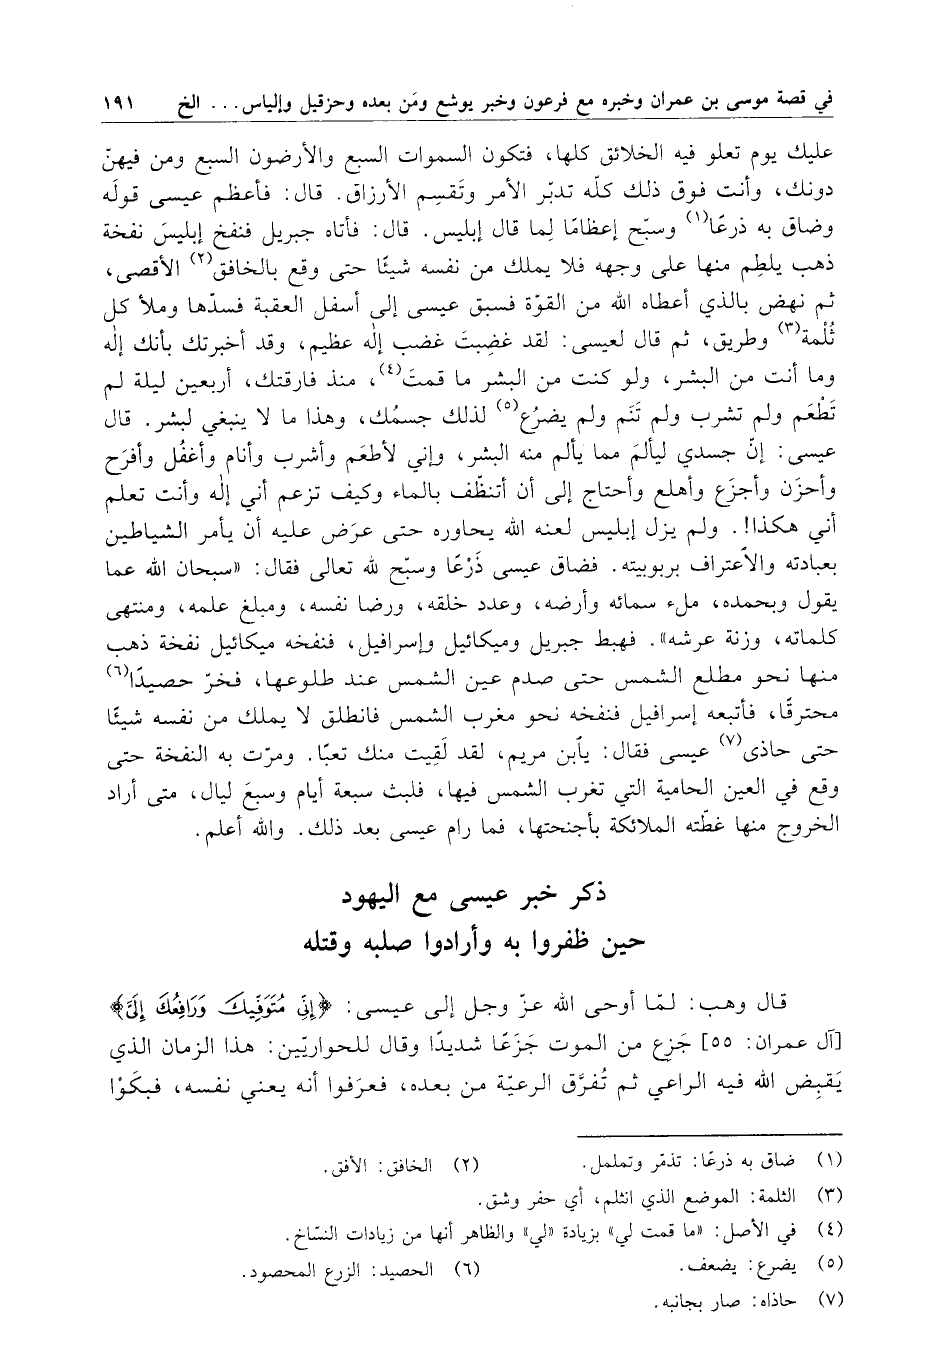 في قصة موسى بن عمران وخبره مع فرعون وخبر يوشع ومَن بعده وحزقيل وإلياس... الخ ١٩١
عليك يوم تعلو فيه الخلائق كلها، فتكون السموات السبع والأرضون السبع ومن فيهنّ
دونك، وأنت فوق ذلك كلّه تدبّر الأمر وتَقسِم الأرزاق. قال: فأعظم عيسى قولَه
وضاق به ذرعًا(١) وسبّح إعظامًا لِما قال إبليس. قال: فأتاه جبريل فنفخ إبليسَ نفخة
ذهب يلطِم منها على وجهه فلا يملك من نفسه شيئًا حتى وقع بالخافق(٢) الأقصى،
ثم نهض بالذي أعطاه الله من القوّة فسبق عيسى إلى أسفل العقبة فسدّها وملأ كل
ثُلْمة(٣) وطريق، ثم قال لعيسى: لقد غضِبتَ غضب إلٰه عظيم، وقد أخبرتك بأنك إلٰه
وما أنت من البشر، ولو كنت من البشر ما قمتَ(٤)، منذ فارقتك، أربعين ليلة لم
تَطْعَم ولم تشرب ولم تَنَم ولم يضرُع(٥) لذلك جسمُك، وهذا ما لا ينبغي لبشر. قال
عيسى: إنّ جسدي ليألَم مما يألم منه البشر، وإني لأطعَم وأشرب وأنام وأغفُل وأفرَح
وأحزَن وأجزَع وأهلع وأحتاج إلى أن أتنظّف بالماء وكيف تزعم أني إلٰه وأنت تعلم
أني هكذا!. ولم يزل إبليس لعنه الله يحاوره حتى عرَض عليه أن يأمر الشياطين
بعبادته والٱعتراف بربوبيته. فضاق عيسى ذَرْعًا وسبّح لله تعالى فقال: «سبحان الله عما
يقول وبحمده، ملء سمائه وأرضه، وعدد خلقه، ورضا نفسه، ومبلغ علمه، ومنتهى
كلماته، وزنة عرشه». فهبط جبريل وميكائيل وإسرافيل، فنفخه ميكائيل نفخة ذهب
منها نحو مطلع الشمس حتى صدم عين الشمس عند طلوعها، فخرّ حصيدًا(٦)
محترقًا، فأتبعه إسرافيل فنفخه نحو مغرب الشمس فانطلق لا يملك من نفسه شيئًا
حتى حاذى(٧) عيسى فقال: يٱبن مريم، لقد لَقِيت منك تعبًا. ومرّت به النفخة حتى
وقع في العين الحامية التي تغرب الشمس فيها، فلبث سبعة أيام وسبعَ ليال، متى أراد
الخروج منها غطّته الملائكة بأجنحتها، فما رام عيسى بعد ذلك. والله أعلم.
ذكر خبر عيسى مع اليهود
حين ظفروا به وأرادوا صلبه وقتله
قال وهب: لمّا أوحى الله عزّ وجل إلى عيسى: ﴿إِنِّي مُتَوَفِّيكَ وَرَافِعُكَ إِلَيَّ﴾
[آل عمران: ٥٥] جَزِع من الموت جَزَعًا شديدًا وقال للحواريّين: هذا الزمان الذي
يَقبِض الله فيه الراعي ثم تُفرَّق الرعيّة من بعده، فعرَفوا أنه يعني نفسه، فبكَوْا
(١) ضاق به ذرعًا: تذمّر وتململ. (٢) الخافق: الأفق.
(٣) الثلمة: الموضع الذي انثلم، أي حفر وشق.
(٤) في الأصل: «ما قمت لي» بزيادة «لي» والظاهر أنها من زيادات النسّاخ.
(٥) يضرع: يضعف. (٦) الحصيد: الزرع المحصود.
(٧) حاذاه: صار بجانبه.